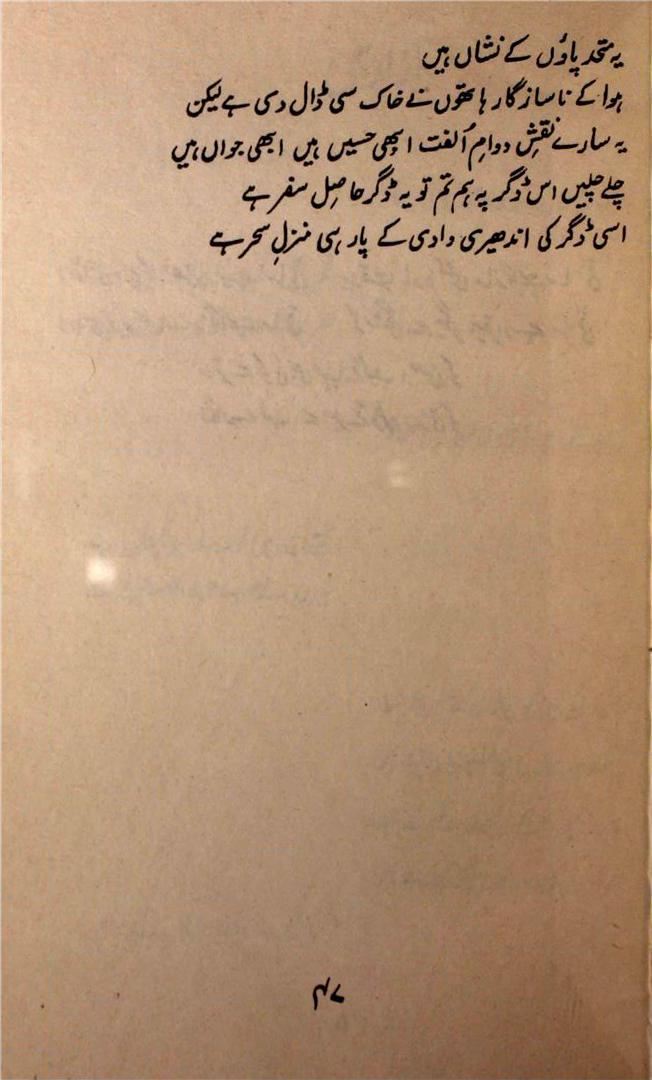 یہ متحد پاؤں کے نشاں ہیں
ہوا کے ناسازگار ہاتھوں نے خاک سی ڈال دی ہے لیکن
یہ سارے نقشِ دوامِ اُلفت ابھی حسیں ہیں ابھی جواں ہیں
چلے چلیں اس ڈگر پہ ہم تم تو یہ ڈگر حاصِل سفر ہے
اسی ڈگر کی اندھیری وادی کے پار ہی منزلِ سحر ہے
۴۷